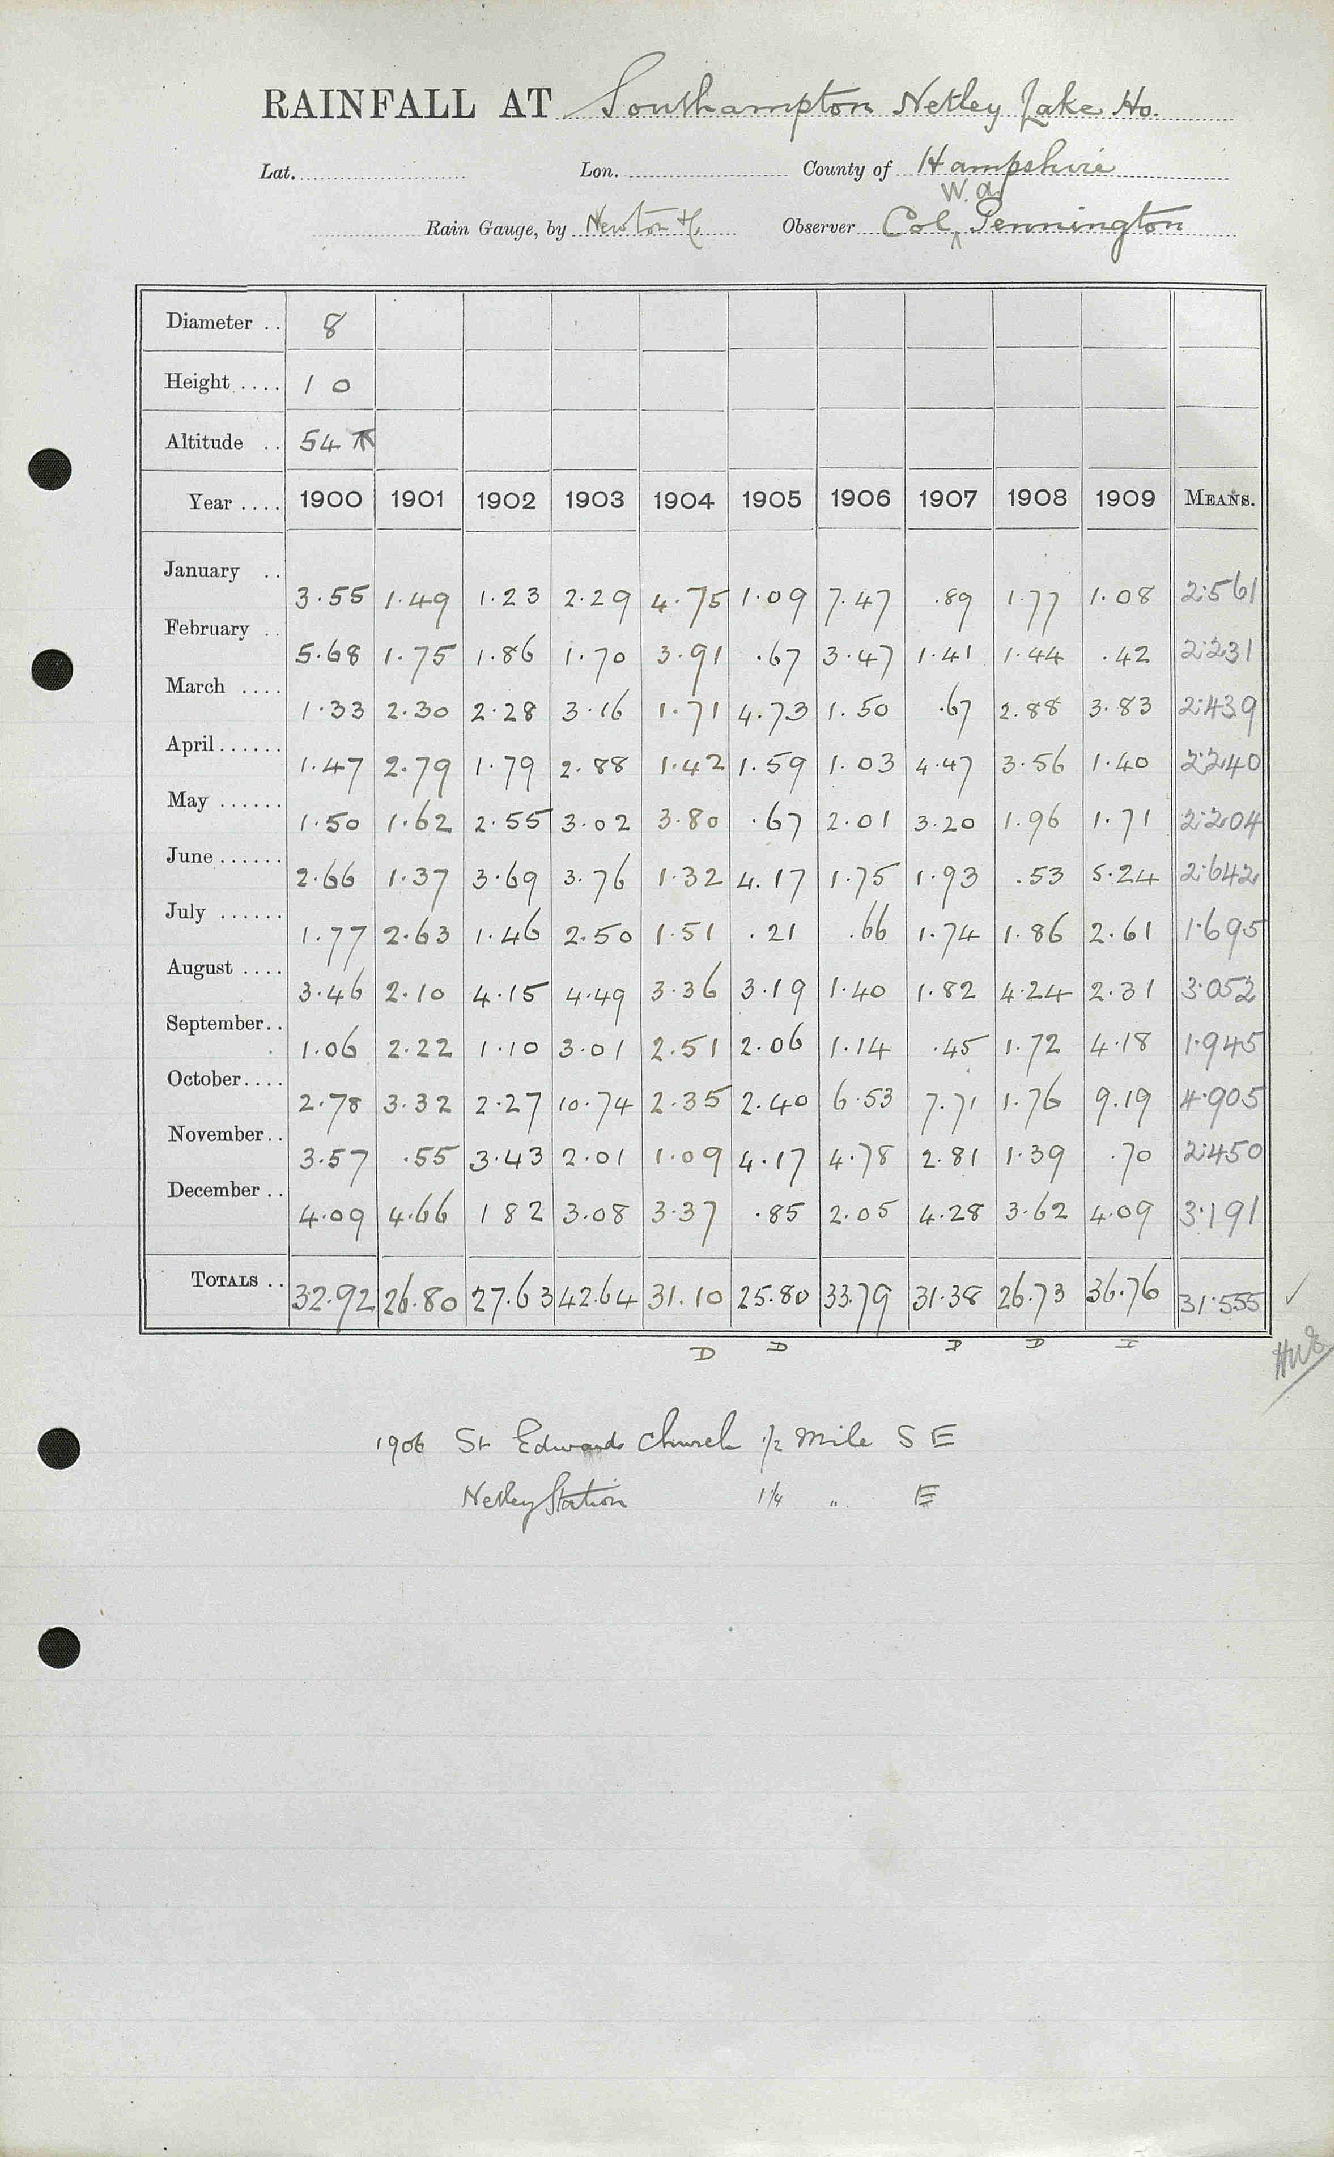 RAINFALL AT Southampton Netley Lake Ho.
Lat. Lon. County of Hampshire
W. a.
Rain Gauge, by Newton & C. Observer Col. ^ Pennington
Diameter .. 8
Height .... 1 0
Altitude .. 54
Year .... 1900 1901 1902 1903 1904 1905 1906 1907 1908 1909 MEANS.
January .. 3.55 1.49 1.23 2.29 4.75 1.09 7.47 .89 1.77 1.08 2.561
February .. 5.68 1.75 1.86 1.70 3.91 .67 3.47 1.41 1.44 .42 2.231
March .... 1.33 2.30 2.28 3.16 1.71 4.73 1.50 .67 2.88 3.83 2.439
April ...... 1.47 2.79 1.79 2.88 1.42 1.59 1.03 4.47 3.56 1.40 2.240
May ...... 1.50 1.62 2.55 3.02 3.80 .67 2.01 3.20 1.96 1.71 2.204
June ...... 2.66 1.37 3.69 3.76 1.32 4.17 1.75 1.93 .53 5.24 2.642
July ...... 1.77 2.63 1.46 2.50 1.51 .21 .66 1.74 1.86 2.61 1.695
August .... 3.46 2.10 4.15 4.49 3.36 3.19 1.40 1.82 4.24 2.31 3.052
September .. 1.06 2.22 1.10 3.01 2.51 2.06 1.14 .45 1.72 4.18 1.945
October .... 2.78 3.32 2.27 10.74 2.35 2.40 6.53 7.71 1.76 9.19 4.905
November .. 3.57 .55 3.43 2.01 1.09 4.17 4.78 2.81 1.39 .70 2.450
December .. 4.09 4.66 1 82 3.08 3.37 .85 2.05 4.28 3.62 4.09 3.191
TOTALS .. 32.92 26.80 27.63 42.64 31.10 25.80 33.79 31.38 26.73 36.76 31.555
D D D D I
1906 St Edwards Church 1/2 Mile S E
Netley Station 1 1/4 " E